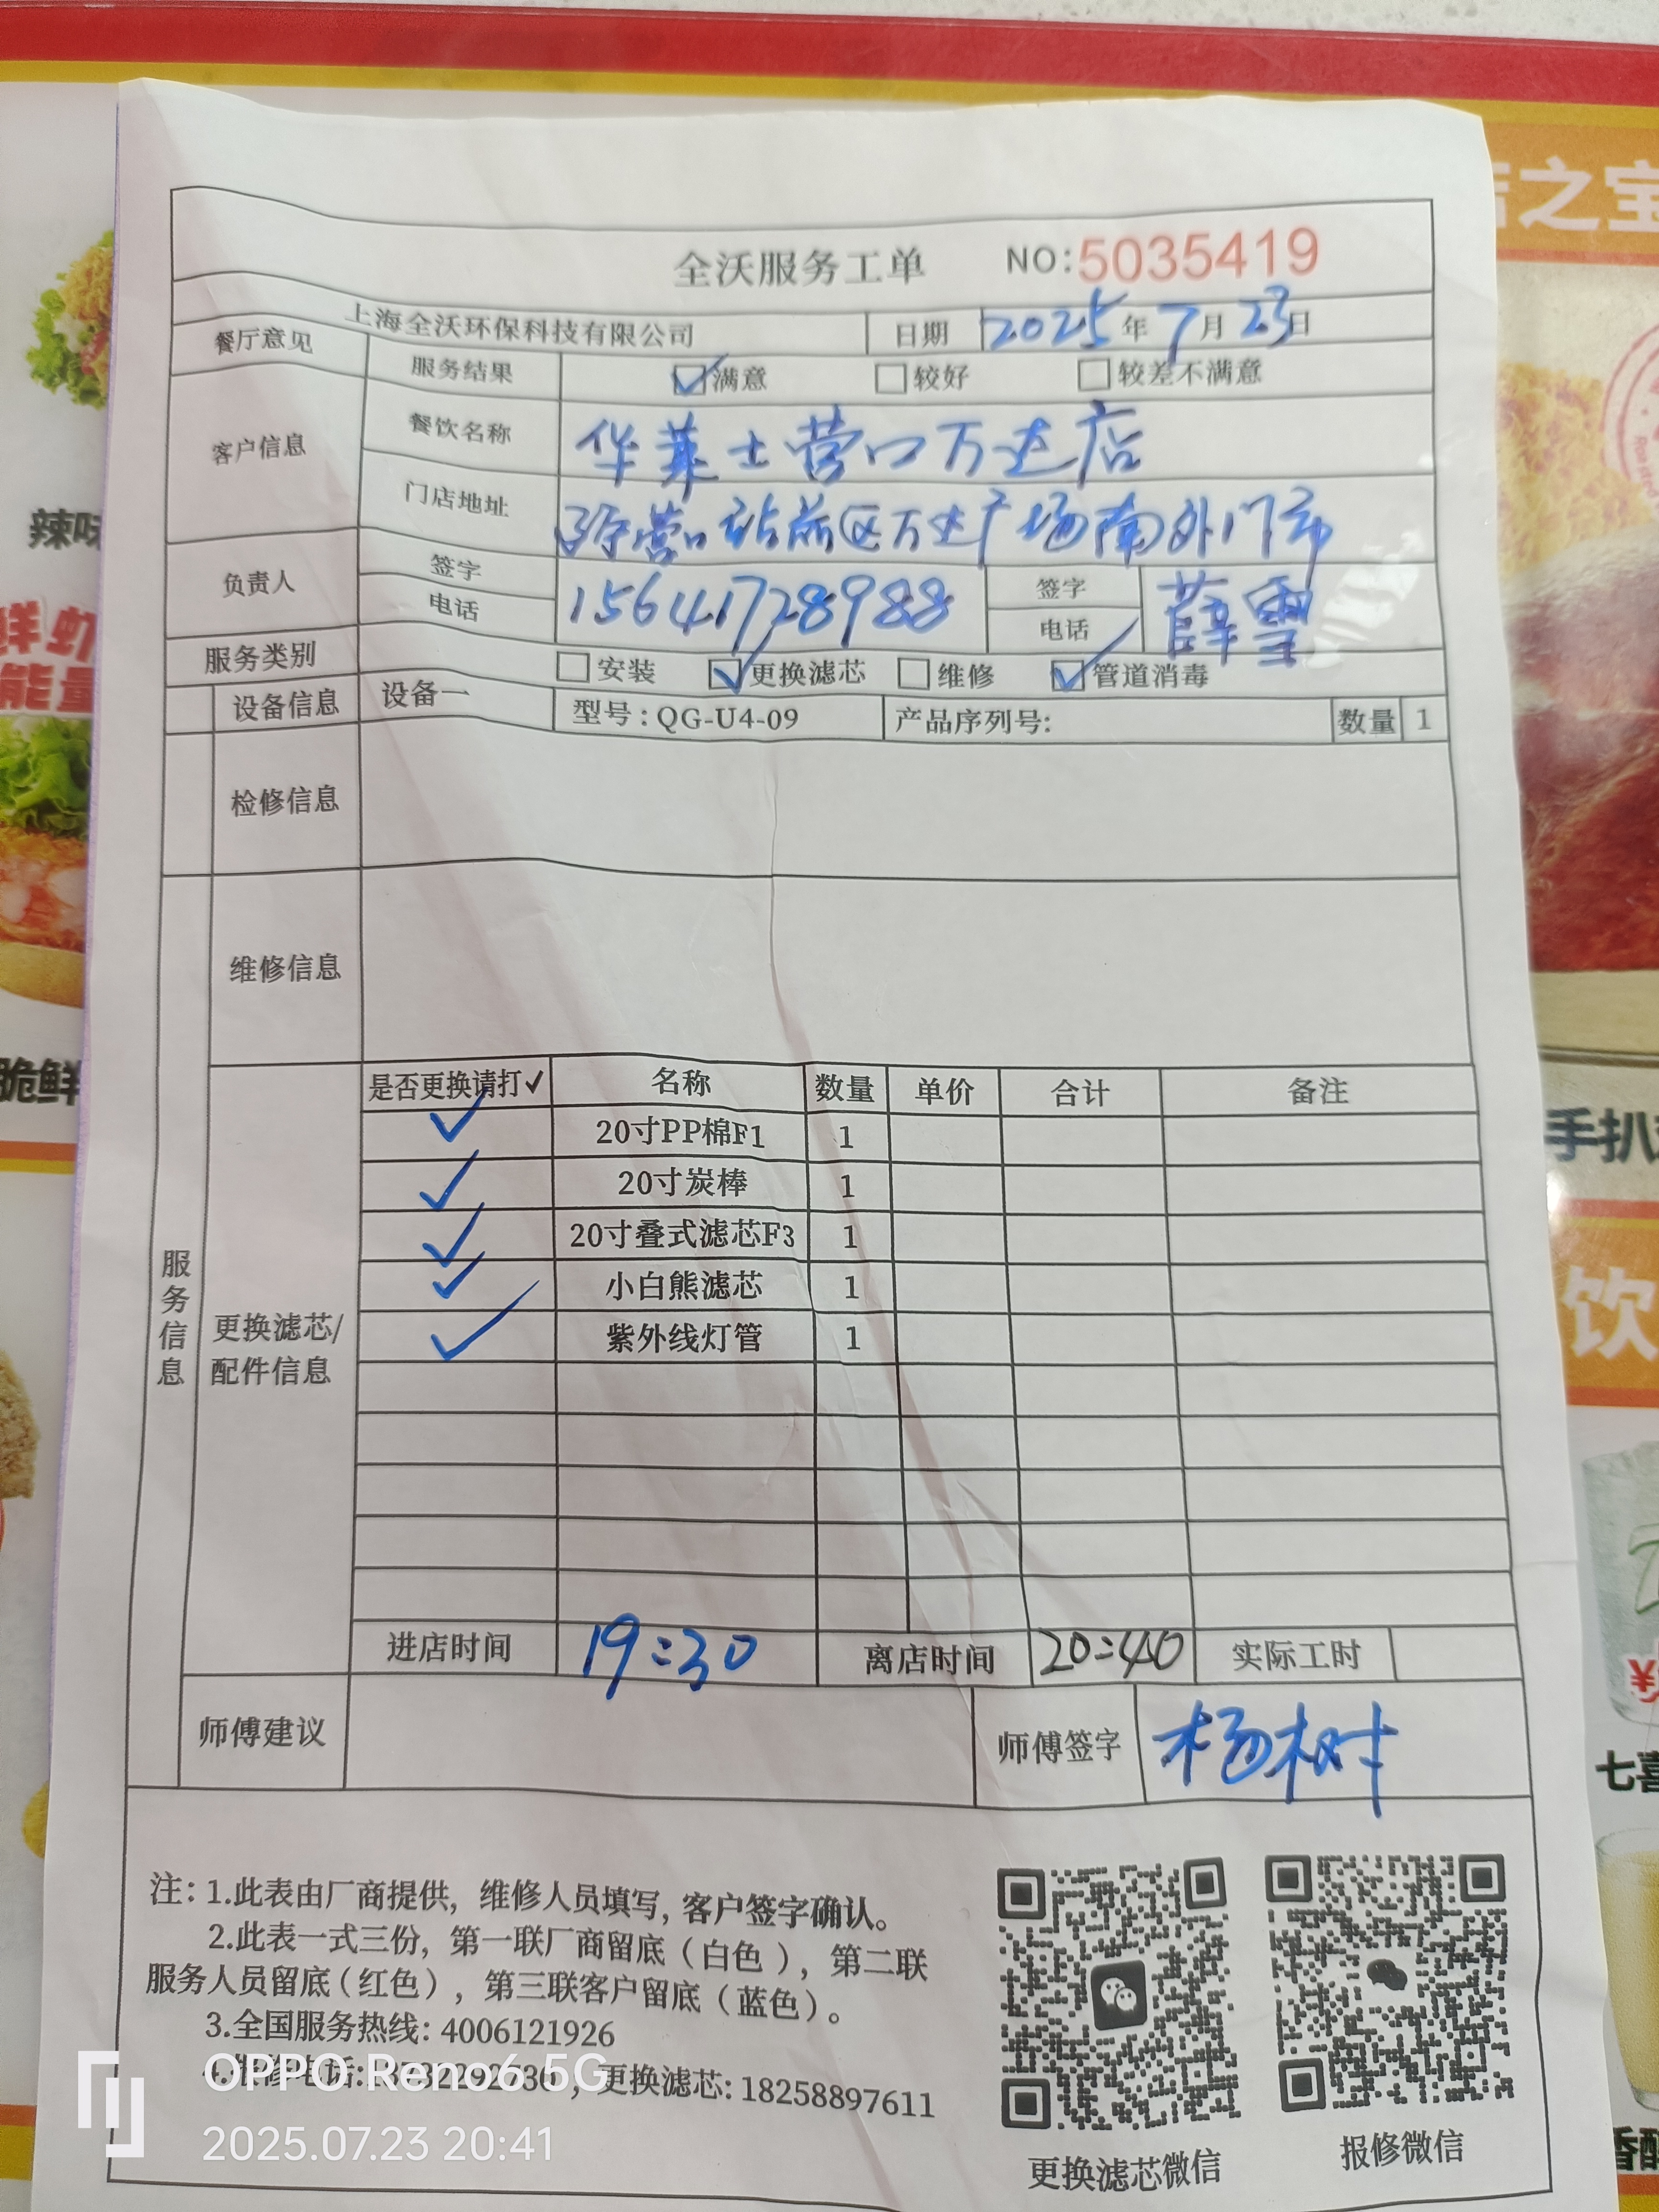 全沃服务工单 NO:5035419
上海全沃环保科技有限公司 日期 2025年7月23日
餐厅意见 服务结果 ☑满意 □较好 □较差不满意
客户信息 餐饮名称 华莱士营口万达店
门店地址 营口站前区万达广场南外门市
负责人 签字 电话 15641728988 签字 电话 薛雪
服务类别 □安装 ☑更换滤芯 □维修 ☑管道消毒
设备信息 设备一 型号:QG-U4-09 产品序列号: 数量 1
检修信息
维修信息
服务信息
更换滤芯/
配件信息
是否更换请打✓ 名称 数量 单价 合计 备注
✓ 20寸PP棉F1 1
✓ 20寸炭棒 1
✓ 20寸叠式滤芯F3 1
✓ 小白熊滤芯 1
✓ 紫外线灯管 1
进店时间 19:30 离店时间 20:40 实际工时
师傅建议 师傅签字 杨树
注: 1.此表由厂商提供, 维修人员填写, 客户签字确认。
2.此表一式三份, 第一联厂商留底(白色), 第二联
服务人员留底(红色), 第三联客户留底(蓝色)。
3.全国服务热线: 4006121926
4.维修电话: , 更换滤芯: 18258897611
更换滤芯微信 报修微信
OPPO Reno6 5G
2025.07.23 20:41
店之宝
辣味
鲜虾
能量
脆鲜
手扒
饮
七喜
¥